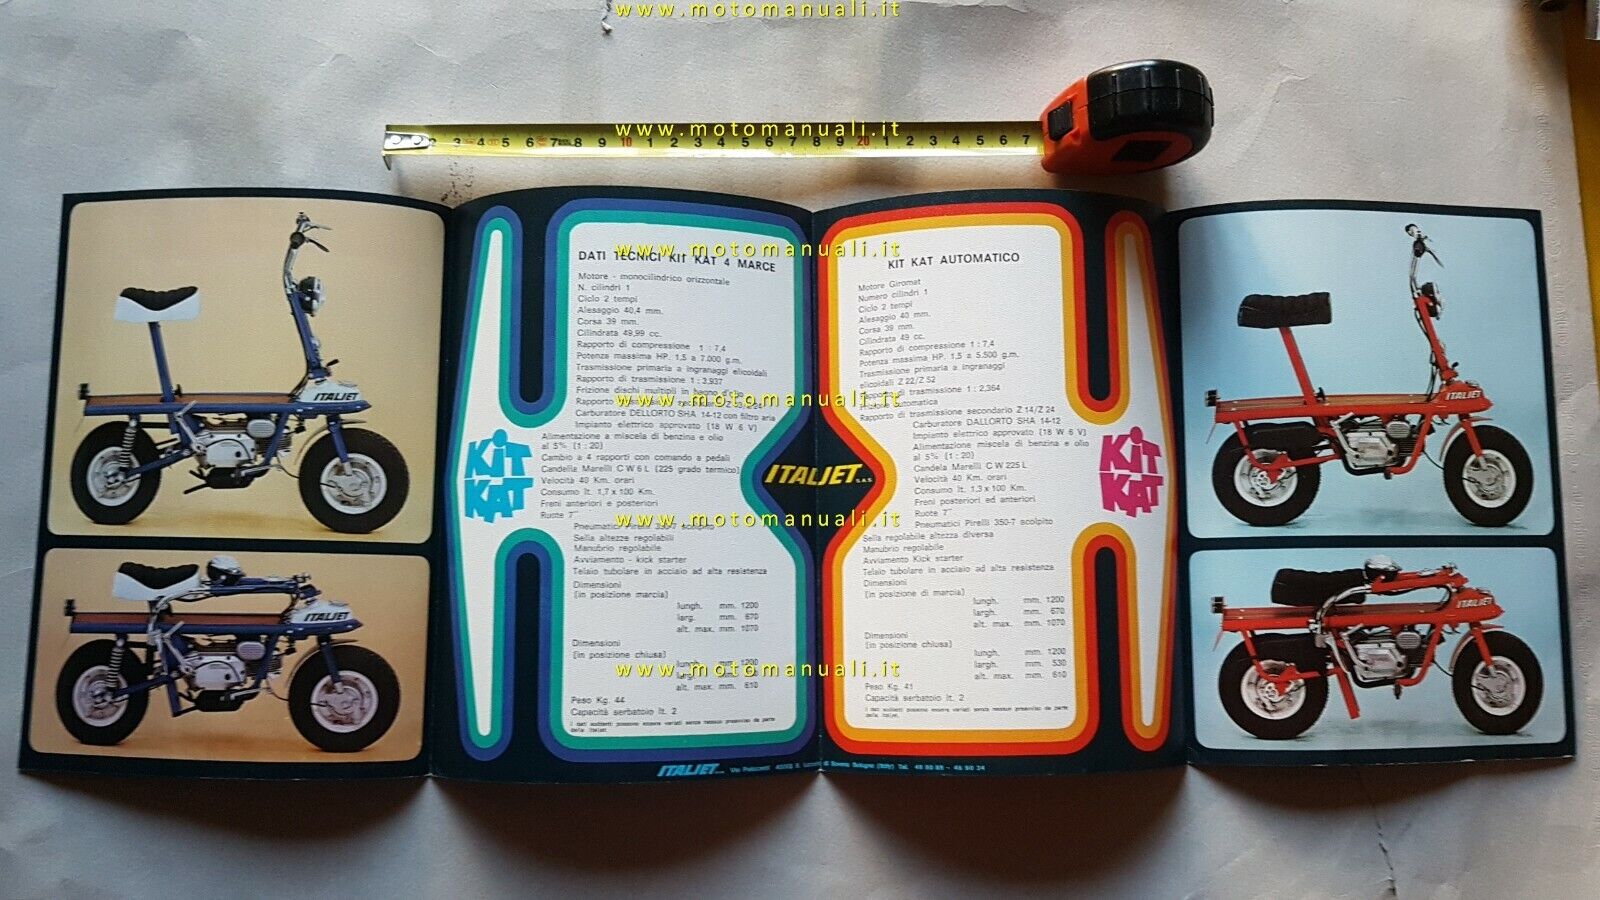 www.motomanuali.it
2 3 4 5 6 7 8 9 10 1 2 3 4 5 6 7 8 9 20 1 2 3 4 5 6 7
www.motomanuali.it
ITALJET
ITALJET
DATI TECNICI KIT KAT 4 MARCE
www.motomanuali.it
Motore - monocilindrico orizzontale
N. cilindri 1
Ciclo 2 tempi
Alesaggio 40,4 mm.
Corsa 39 mm.
Cilindrata 49,99 cc.
Rapporto di compressione 1 : 7,4
Potenza massima HP. 1,5 a 7.000 g.m.
Trasmissione primaria a ingranaggi elicoidali
Rapporto di trasmissione 1 : 3,937
Frizione dischi multipli in
Rapporto
www.motomanuali.it
Carburatore DELLORTO SHA 14-12 con filtro aria
Impianto elettrico approvato (18 W 6 V)
Alimentazione a miscela di benzina e olio
al 5% (1 : 20)
Cambio a 4 rapporti con comando a pedali
Candella Marelli C W 6 L (225 grado termico)
Velocità 40 Km. orari
Consumo lt. 1,7 x 100 Km.
Freni anteriori e posteriori
Ruote 7"
www.motomanuali.it
Pneumatici Pirelli 350-7 scolpito
Sella altezze regolabili
Manubrio regolabile
Avviamento - kick starter
Telaio tubolare in acciaio ad alta resistenza
Dimensioni
(in posizione marcia)
lungh. mm. 1200
larg. mm. 670
alt. max. mm. 1070
Dimensioni
(in posizione chiusa)
lungh. mm. 1200
www.motomanuali.it
alt. max. mm. 610
Peso Kg. 44
Capacità serbatoio lt. 2
I dati suddetti possono essere variati senza nessun preavviso da parte
della Italjet
KIT
KAT
ITALJET S.A.S
KIT KAT AUTOMATICO
Motore Giromat
Numero cilindri 1
Ciclo 2 tempi
Alesaggio 40 mm.
Corsa 39 mm.
Cilindrata 49 cc.
Rapporto di compressione 1 : 7,4
Potenza massima HP. 1,5 a 5.500 g.m.
Trasmissione primaria a ingranaggi
elicoidali Z 22/Z 52
Rapporto di trasmissione 1 : 2,364
Frizione automatica
Rapporto di trasmissione secondario Z 14/Z 24
Carburatore DALLORTO SHA 14-12
Impianto elettrico approvato (18 W 6 V)
Alimentazione miscela di benzina e olio
al 5% (1 : 20)
Candela Marelli C W 225 L
Velocità 40 Km. orari
Consumo lt. 1,3 x 100 Km.
Freni posteriori ed anteriori
Ruote 7"
Pneumatici Pirelli 350-7 scolpito
Sella regolabile altezza diversa
Manubrio regolabile
Avviamento Kick starter
Telaio tubolare in acciaio ad alta resistenza
Dimensioni
(in posizione di marcia)
lungh. mm. 1200
largh. mm. 670
alt. max. mm. 1070
Dimensioni
(in posizione chiusa)
lungh. mm. 1200
largh. mm. 530
alt. max. mm. 610
Peso Kg. 41
Capacità serbatoio lt. 2
I dati suddetti possono essere variati senza nessun preavviso da parte
della Italjet.
KIT
KAT
ITALJET
ITALJET
ITALJET Bologna (Italy) Tel.